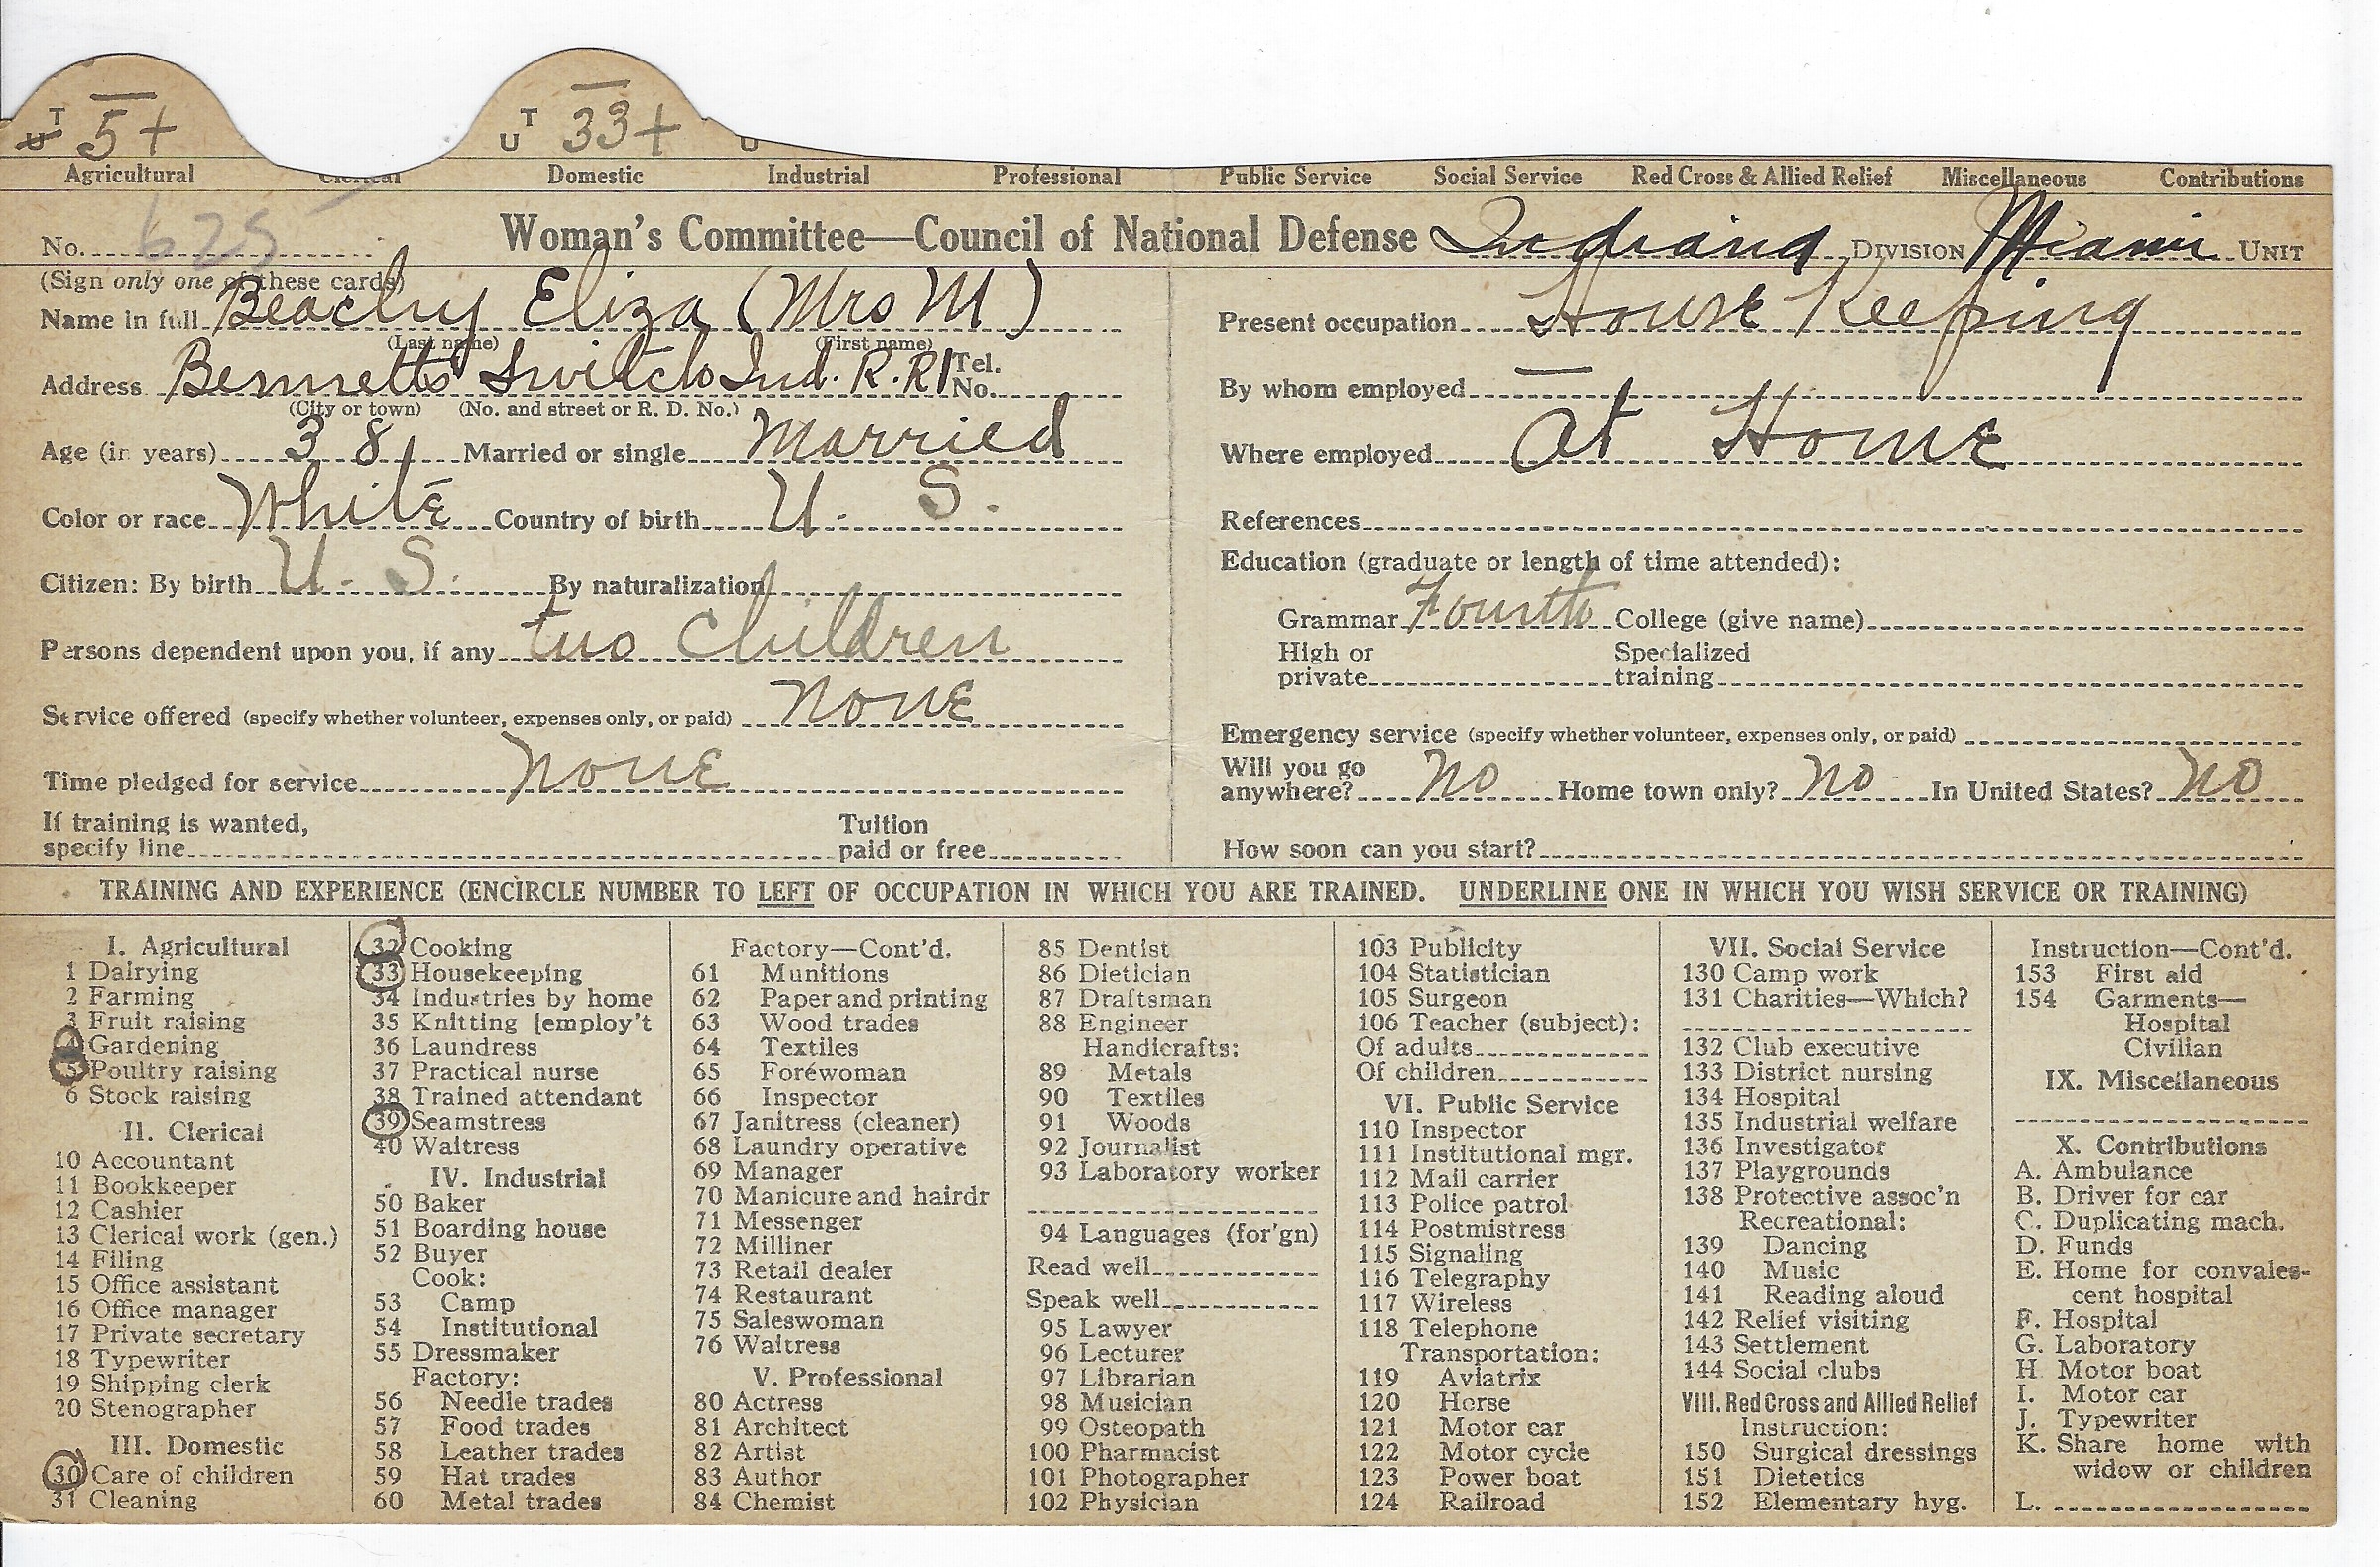 T U 5+ T U 33+ U
Agricultural Clerical Domestic Industrial Professional Public Service Social Service Red Cross & Allied Relief Miscellaneous Contributions
No. 625 Woman's Committee—Council of National Defense Indiana DIVISION Miami UNIT
(Sign only one of these cards)
Name in full Beachy Eliza (Mrs M)
(Last name) (First name)
Address Bennetts Switch Ind. R.R1 Tel. No.
(City or town) (No. and street or R. D. No.)
Age (in years) 38 Married or single Married
Color or race White Country of birth U. S.
Citizen: By birth U. S. By naturalization
Persons dependent upon you, if any two children
Service offered (specify whether volunteer, expenses only, or paid) none
Time pledged for service none
If training is wanted,
specify line Tuition paid or free
Present occupation House Keeping
By whom employed —
Where employed At Home
References
Education (graduate or length of time attended):
Grammar Fourth College (give name)
High or private Specialized training
Emergency service (specify whether volunteer, expenses only, or paid)
Will you go anywhere? No Home town only? No In United States? No
How soon can you start?
TRAINING AND EXPERIENCE (ENCIRCLE NUMBER TO LEFT OF OCCUPATION IN WHICH YOU ARE TRAINED. UNDERLINE ONE IN WHICH YOU WISH SERVICE OR TRAINING)
I. Agricultural
1 Dairying
2 Farming
3 Fruit raising
4 Gardening
5 Poultry raising
6 Stock raising
II. Clerical
10 Accountant
11 Bookkeeper
12 Cashier
13 Clerical work (gen.)
14 Filing
15 Office assistant
16 Office manager
17 Private secretary
18 Typewriter
19 Shipping clerk
20 Stenographer
III. Domestic
30 Care of children
31 Cleaning
32 Cooking
33 Housekeeping
34 Industries by home
35 Knitting [employ't
36 Laundress
37 Practical nurse
38 Trained attendant
39 Seamstress
40 Waitress
IV. Industrial
50 Baker
51 Boarding house
52 Buyer
Cook:
53 Camp
54 Institutional
55 Dressmaker
Factory:
56 Needle trades
57 Food trades
58 Leather trades
59 Hat trades
60 Metal trades
Factory—Cont'd.
61 Munitions
62 Paper and printing
63 Wood trades
64 Textiles
65 Forewoman
66 Inspector
67 Janitress (cleaner)
68 Laundry operative
69 Manager
70 Manicure and hairdr
71 Messenger
72 Milliner
73 Retail dealer
74 Restaurant
75 Saleswoman
76 Waitress
V. Professional
80 Actress
81 Architect
82 Artist
83 Author
84 Chemist
85 Dentist
86 Dietician
87 Draftsman
88 Engineer
Handicrafts:
89 Metals
90 Textiles
91 Woods
92 Journalist
93 Laboratory worker
94 Languages (for'gn)
Read well
Speak well
95 Lawyer
96 Lecturer
97 Librarian
98 Musician
99 Osteopath
100 Pharmacist
101 Photographer
102 Physician
103 Publicity
104 Statistician
105 Surgeon
106 Teacher (subject):
Of adults
Of children
VI. Public Service
110 Inspector
111 Institutional mgr.
112 Mail carrier
113 Police patrol
114 Postmistress
115 Signaling
116 Telegraphy
117 Wireless
118 Telephone
Transportation:
119 Aviatrix
120 Horse
121 Motor car
122 Motor cycle
123 Power boat
124 Railroad
VII. Social Service
130 Camp work
131 Charities—Which?
132 Club executive
133 District nursing
134 Hospital
135 Industrial welfare
136 Investigator
137 Playgrounds
138 Protective assoc'n
Recreational:
139 Dancing
140 Music
141 Reading aloud
142 Relief visiting
143 Settlement
144 Social clubs
VIII. Red Cross and Allied Relief
Instruction:
150 Surgical dressings
151 Dietetics
152 Elementary hyg.
Instruction—Cont'd.
153 First aid
154 Garments—
Hospital
Civilian
IX. Miscellaneous
X. Contributions
A. Ambulance
B. Driver for car
C. Duplicating mach.
D. Funds
E. Home for convales-
cent hospital
F. Hospital
G. Laboratory
H. Motor boat
I. Motor car
J. Typewriter
K. Share home with
widow or children
L.